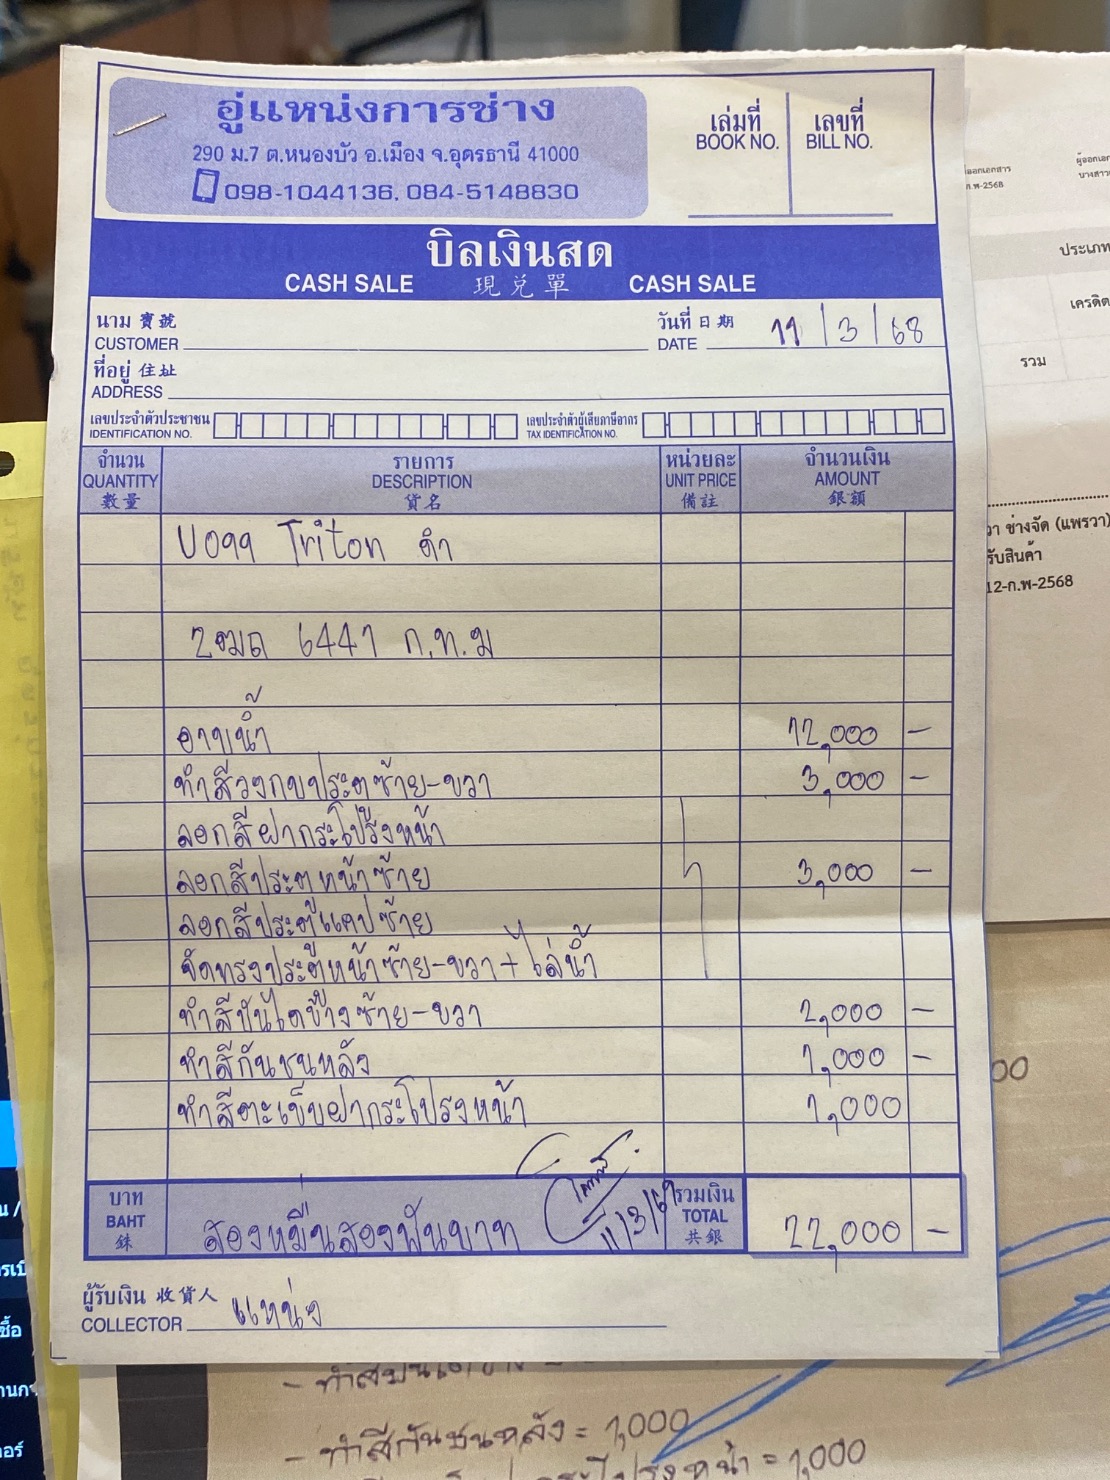 อู่แหน่งการช่าง
290 ม.7 ต.หนองบัว อ.เมือง จ.อุดรธานี 41000
098-1044136, 084-5148830
เล่มที่ เลขที่
BOOK NO. BILL NO.
บิลเงินสด
CASH SALE 現兑單 CASH SALE
นาม 寶號 วันที่ 日期 11/3/68
CUSTOMER DATE
ที่อยู่ 住址
ADDRESS
เลขประจำตัวประชาชน เลขประจำตัวผู้เสียภาษีอากร
IDENTIFICATION NO. TAX IDENTIFICATION NO.
จำนวน รายการ หน่วยละ จำนวนเงิน
QUANTITY DESCRIPTION UNIT PRICE AMOUNT
數量 貨名 備註 銀額
U099 Triton ดำ
2ฒถ 6441 ก.ท.ม
อาบน้ำ 12,000 -
ทำสีวงกบประตูซ้าย-ขวา 3,000 -
ลอกสีฝากระโปรงหน้า
ลอกสีประตูหน้าซ้าย 3,000 -
ลอกสีประตูแคปซ้าย
จัดทรงประตูหน้าซ้าย-ขวา+ไล่น้ำ
ทำสีบันไดข้างซ้าย-ขวา 2,000 -
ทำสีกันชนหลัง 1,000 -
ทำสีตะเข็บฝากระโปรงหน้า 1,000
บาท รวมเงิน
BAHT สองหมื่นสองพันบาท 11/3/68 TOTAL 22,000 -
銖 共銀
ผู้รับเงิน 收貨人 แหน่ง
COLLECTOR
ผู้ออกเอกสาร
ก.พ-2568
ประเภท
เครดิต
รวม
วา ช่างจัด (แพรวา)
รับสินค้า
12-ก.พ-2568
- ทำสีกันชนหลัง = 1,000
หน้า = 1,000